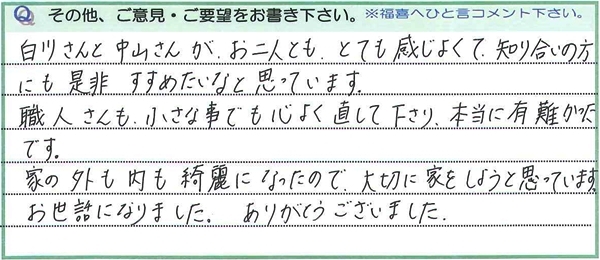 Q その他、ご意見・ご要望をお書き下さい。※福喜へひと言コメント下さい。
白川さんと中山さんが、お二人とも、とても感じよくて、知り合いの方
にも是非 すすめたいなと思っています。
職人さんも、小さな事でも心よく直して下さり、本当に有難かった
です。
家の外も内も綺麗になったので、大切に家をしようと思っています。
お世話になりました。 ありがとうございました。